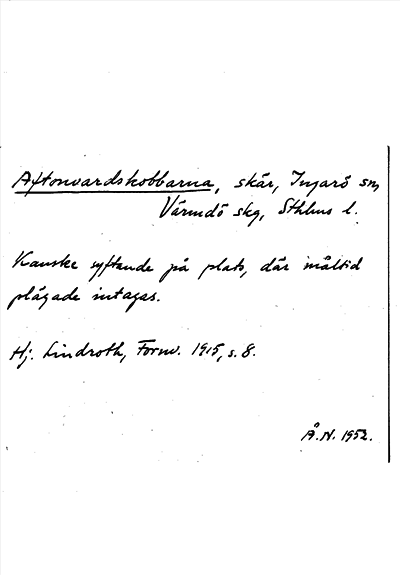 Aftonvardskobbarna, skär, Ingarö sn,
Värmdö skg, Sthlms l.
Kanske syftande på plats, där måltid
plägade intagas.
Hj. Lindroth, Fornv. 1915, s. 8.
Å.N. 1952.